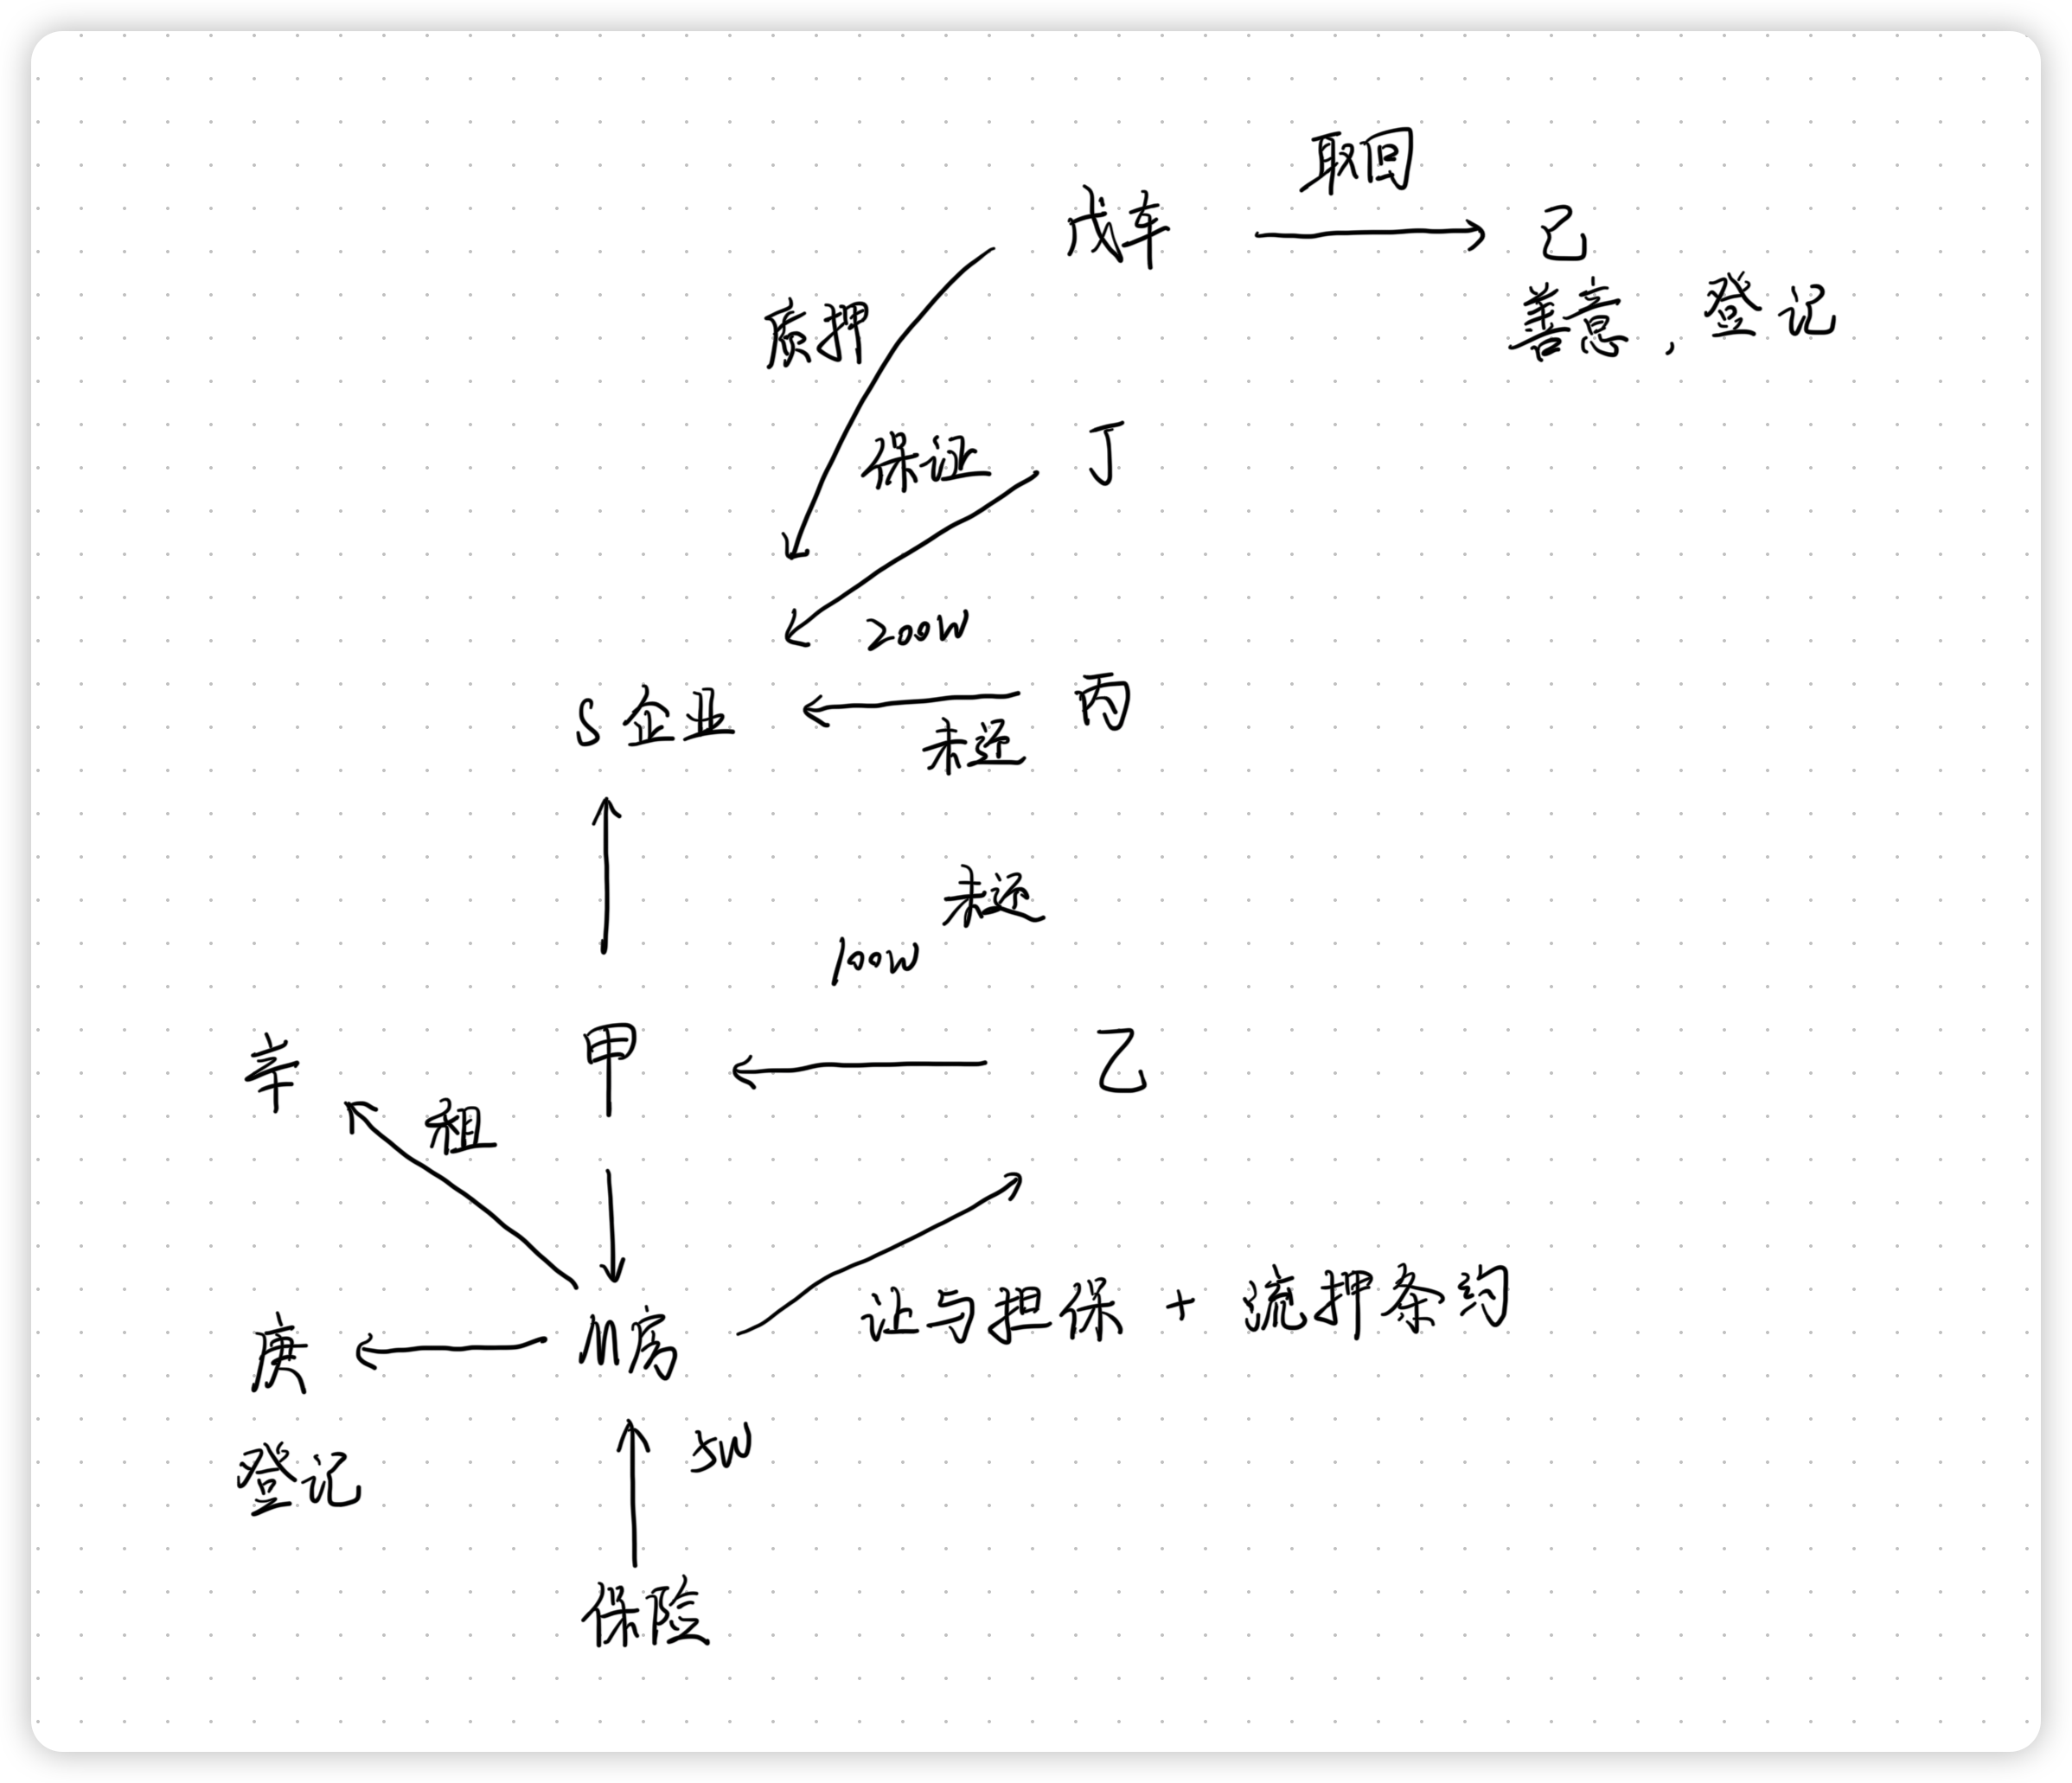 取回
戊车
己
善意，登记
质押
保证
丁
200W
S企业
丙
未还
未还
100W
辛
甲
乙
租
让与担保 + 流押条约
庚
M房
登记
5W
保险